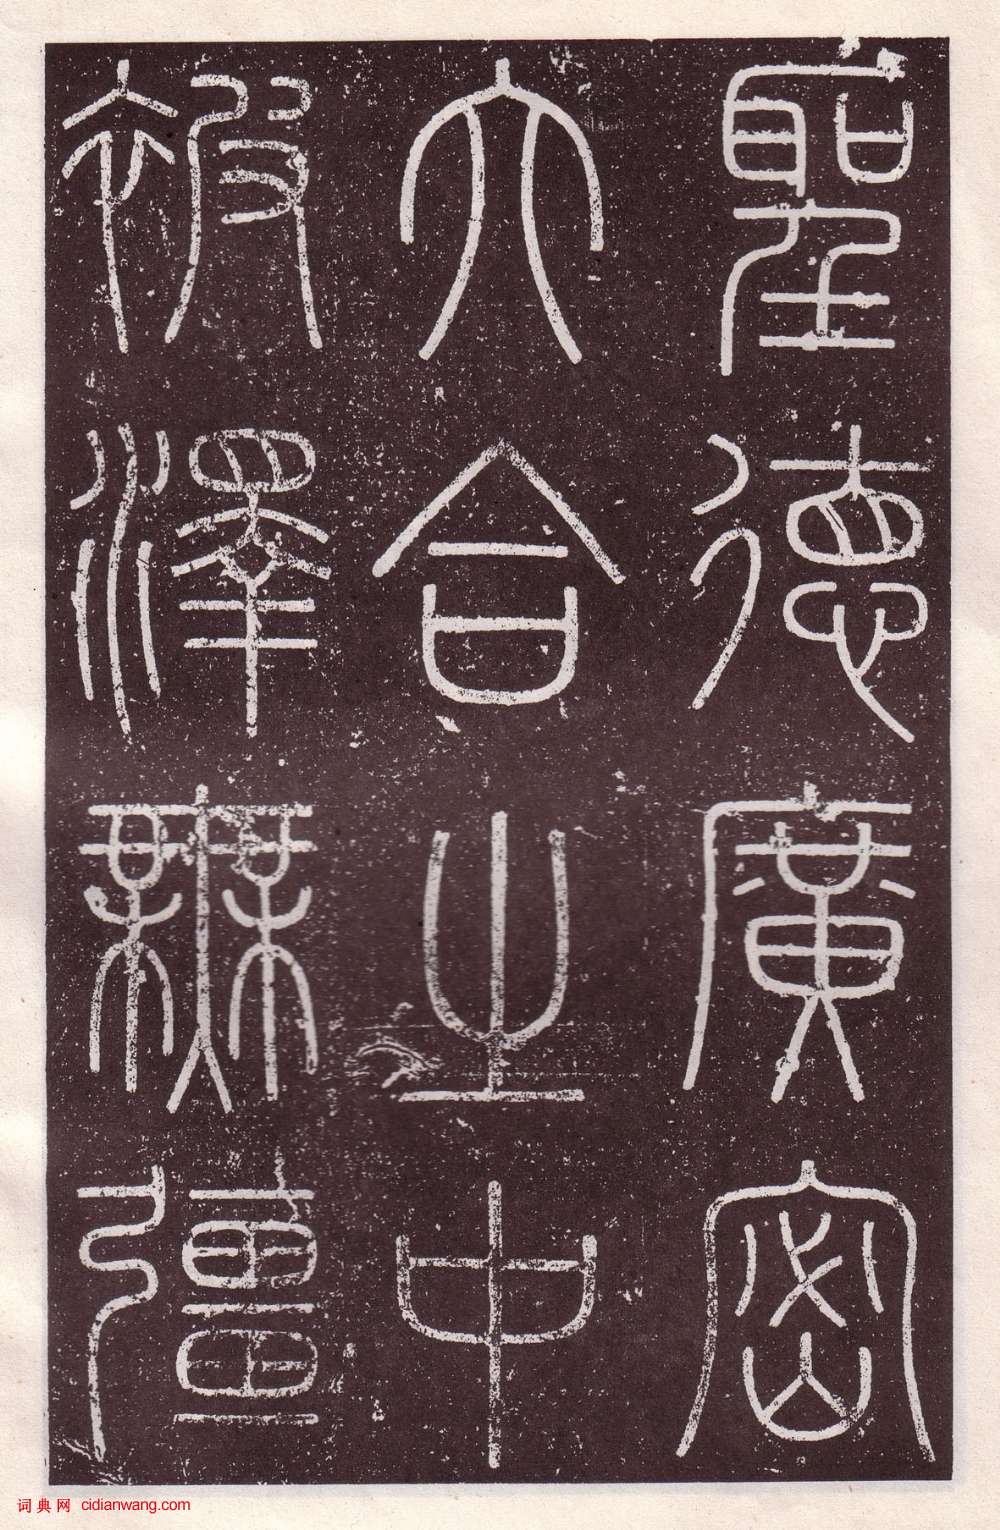 聖德廣密
六合之中
被澤無彊
词典网 cidianwang.com